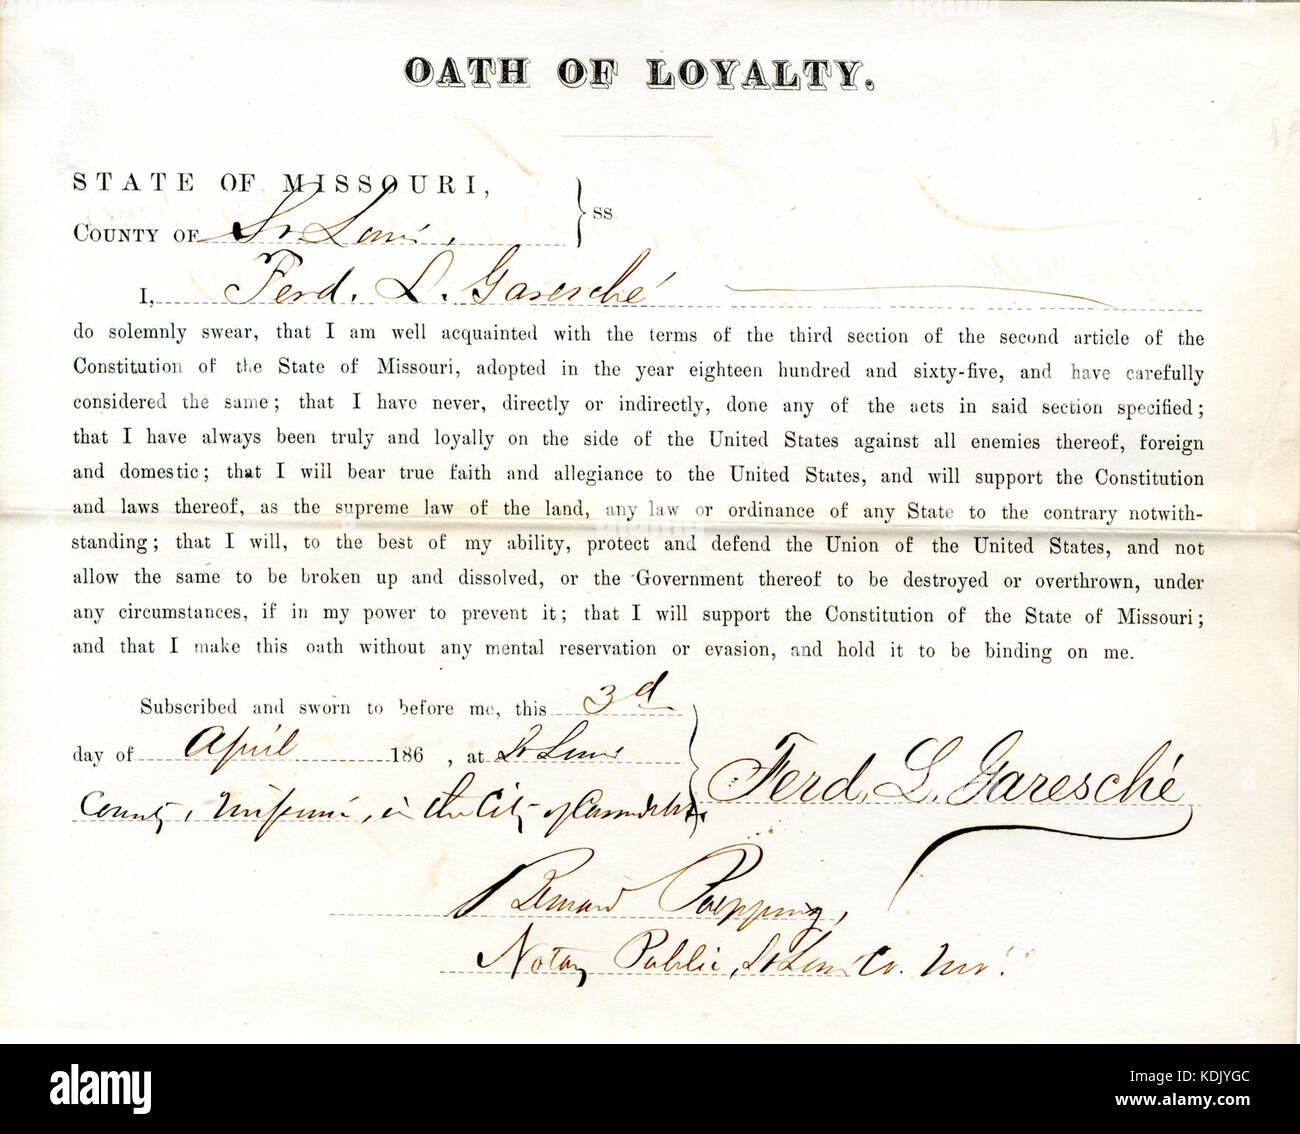 OATH OF LOYALTY.
STATE OF MISSOURI,
COUNTY OF St. Louis, } ss
I, Ferd. L. Garesché
do solemnly swear, that I am well acquainted with the terms of the third section of the second article of the
Constitution of the State of Missouri, adopted in the year eighteen hundred and sixty-five, and have carefully
considered the same; that I have never, directly or indirectly, done any of the acts in said section specified;
that I have always been truly and loyally on the side of the United States against all enemies thereof, foreign
and domestic; that I will bear true faith and allegiance to the United States, and will support the Constitution
and laws thereof, as the supreme law of the land, any law or ordinance of any State to the contrary notwith-
standing; that I will, to the best of my ability, protect and defend the Union of the United States, and not
allow the same to be broken up and dissolved, or the Government thereof to be destroyed or overthrown, under
any circumstances, if in my power to prevent it; that I will support the Constitution of the State of Missouri;
and that I make this oath without any mental reservation or evasion, and hold it to be binding on me.
Subscribed and sworn to before me, this 3d
day of April 186 , at St Louis
County, Missouri, in the City of Carondelet.
Ferd. L. Garesché
Bernard Poepping,
Notary Public, St Louis Co. Mo.
alamy
Image ID: KDJYGC
www.alamy.com